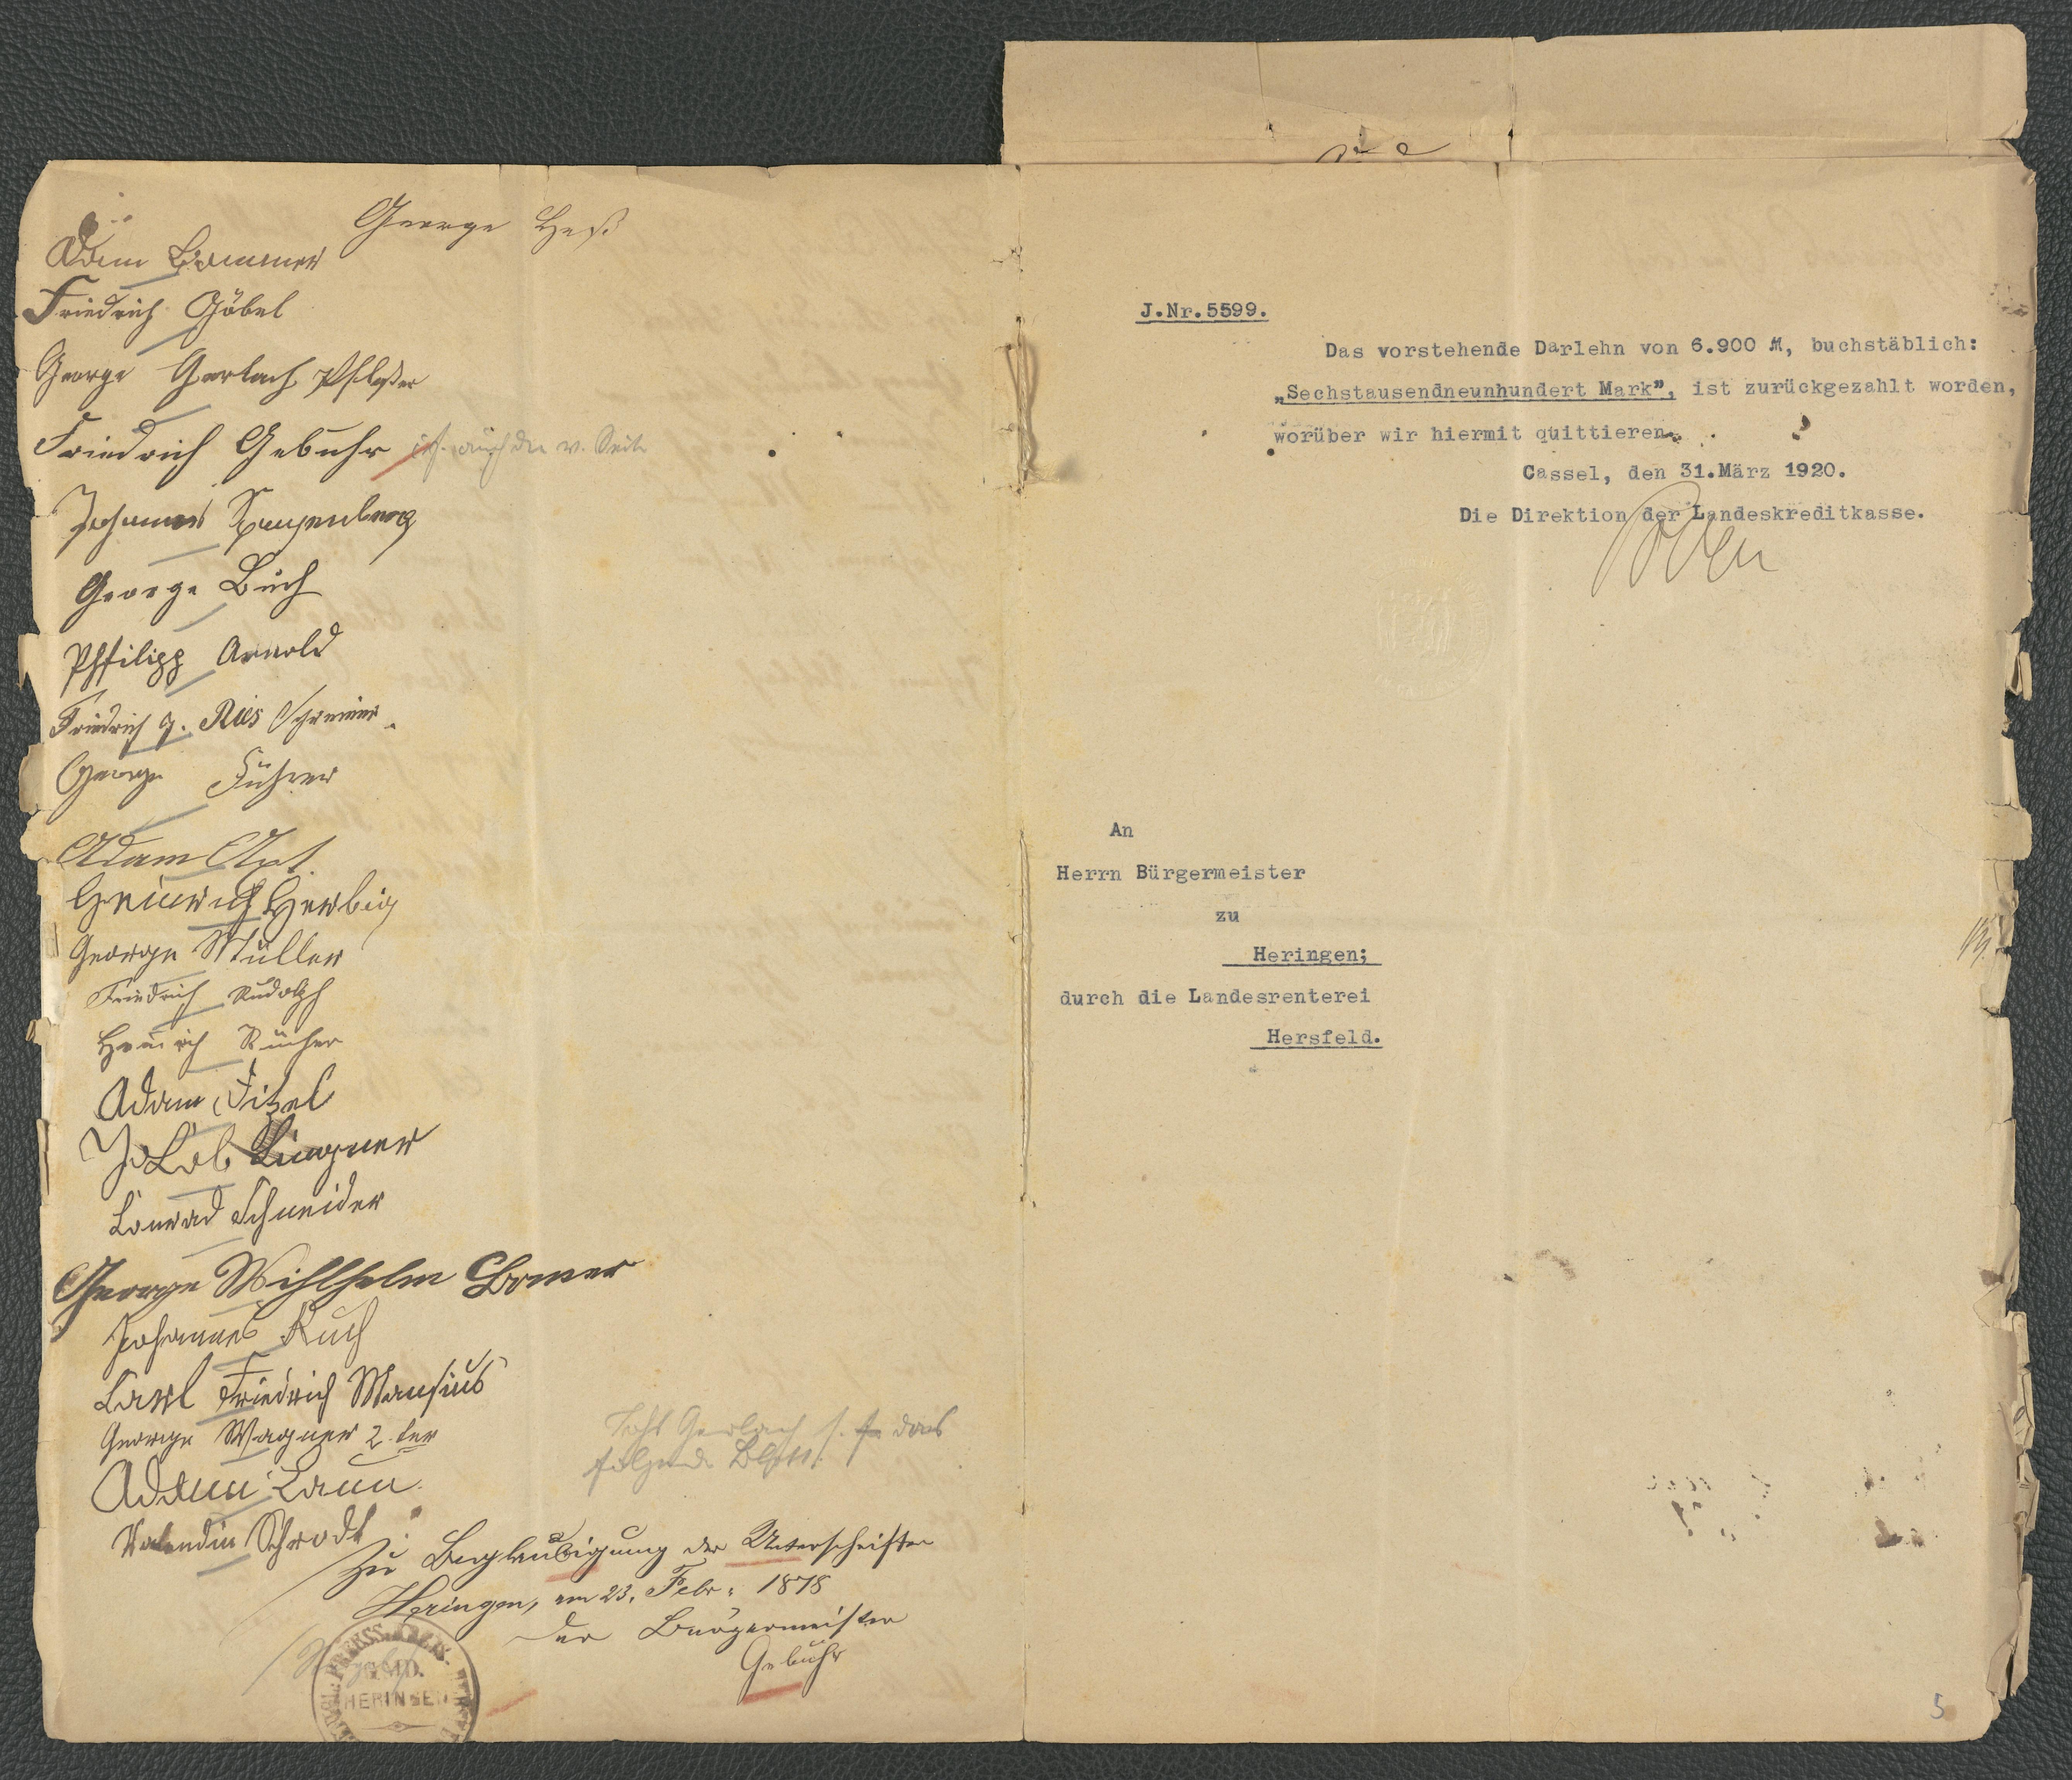 George Heß
Adam Bommer
Friedrich Göbel
George Gerlach
Friedrich Gebuhr
auch die v. Seite
Johannes
George Buch
Phfilipp Arnold
Friedrich g. Ries Schreiner
George Führer
Adam Apt.
Heinrich Herbig
George Müller
Friedrich Rudolph
Heinrich
Adam Fitzel
Jakob
Conrad Schneider
George Wihlhelm Bomer
Johannes Ruch
Carl Friedrich Mansius
George Wagner 2. ter
Adam Laun
Valendin Schrodt
Gerlach s. das
folgende Blatt.
Zur Beglaubigung der Unterschriften
Heringen, am 23. Febr. 1878
Der Bürgermeister
Gebuhr
GMD.
HERINGEN
J.Nr.5599.
Das vorstehende Darlehn von 6.900 M, buchstäblich:
„Sechstausendneunhundert Mark", ist zurückgezahlt worden,
worüber wir hiermit quittieren.
Cassel, den 31.März 1920.
Die Direktion der Landeskreditkasse.
An
Herrn Bürgermeister
zu
Heringen;
durch die Landesrenterei
Hersfeld.
5